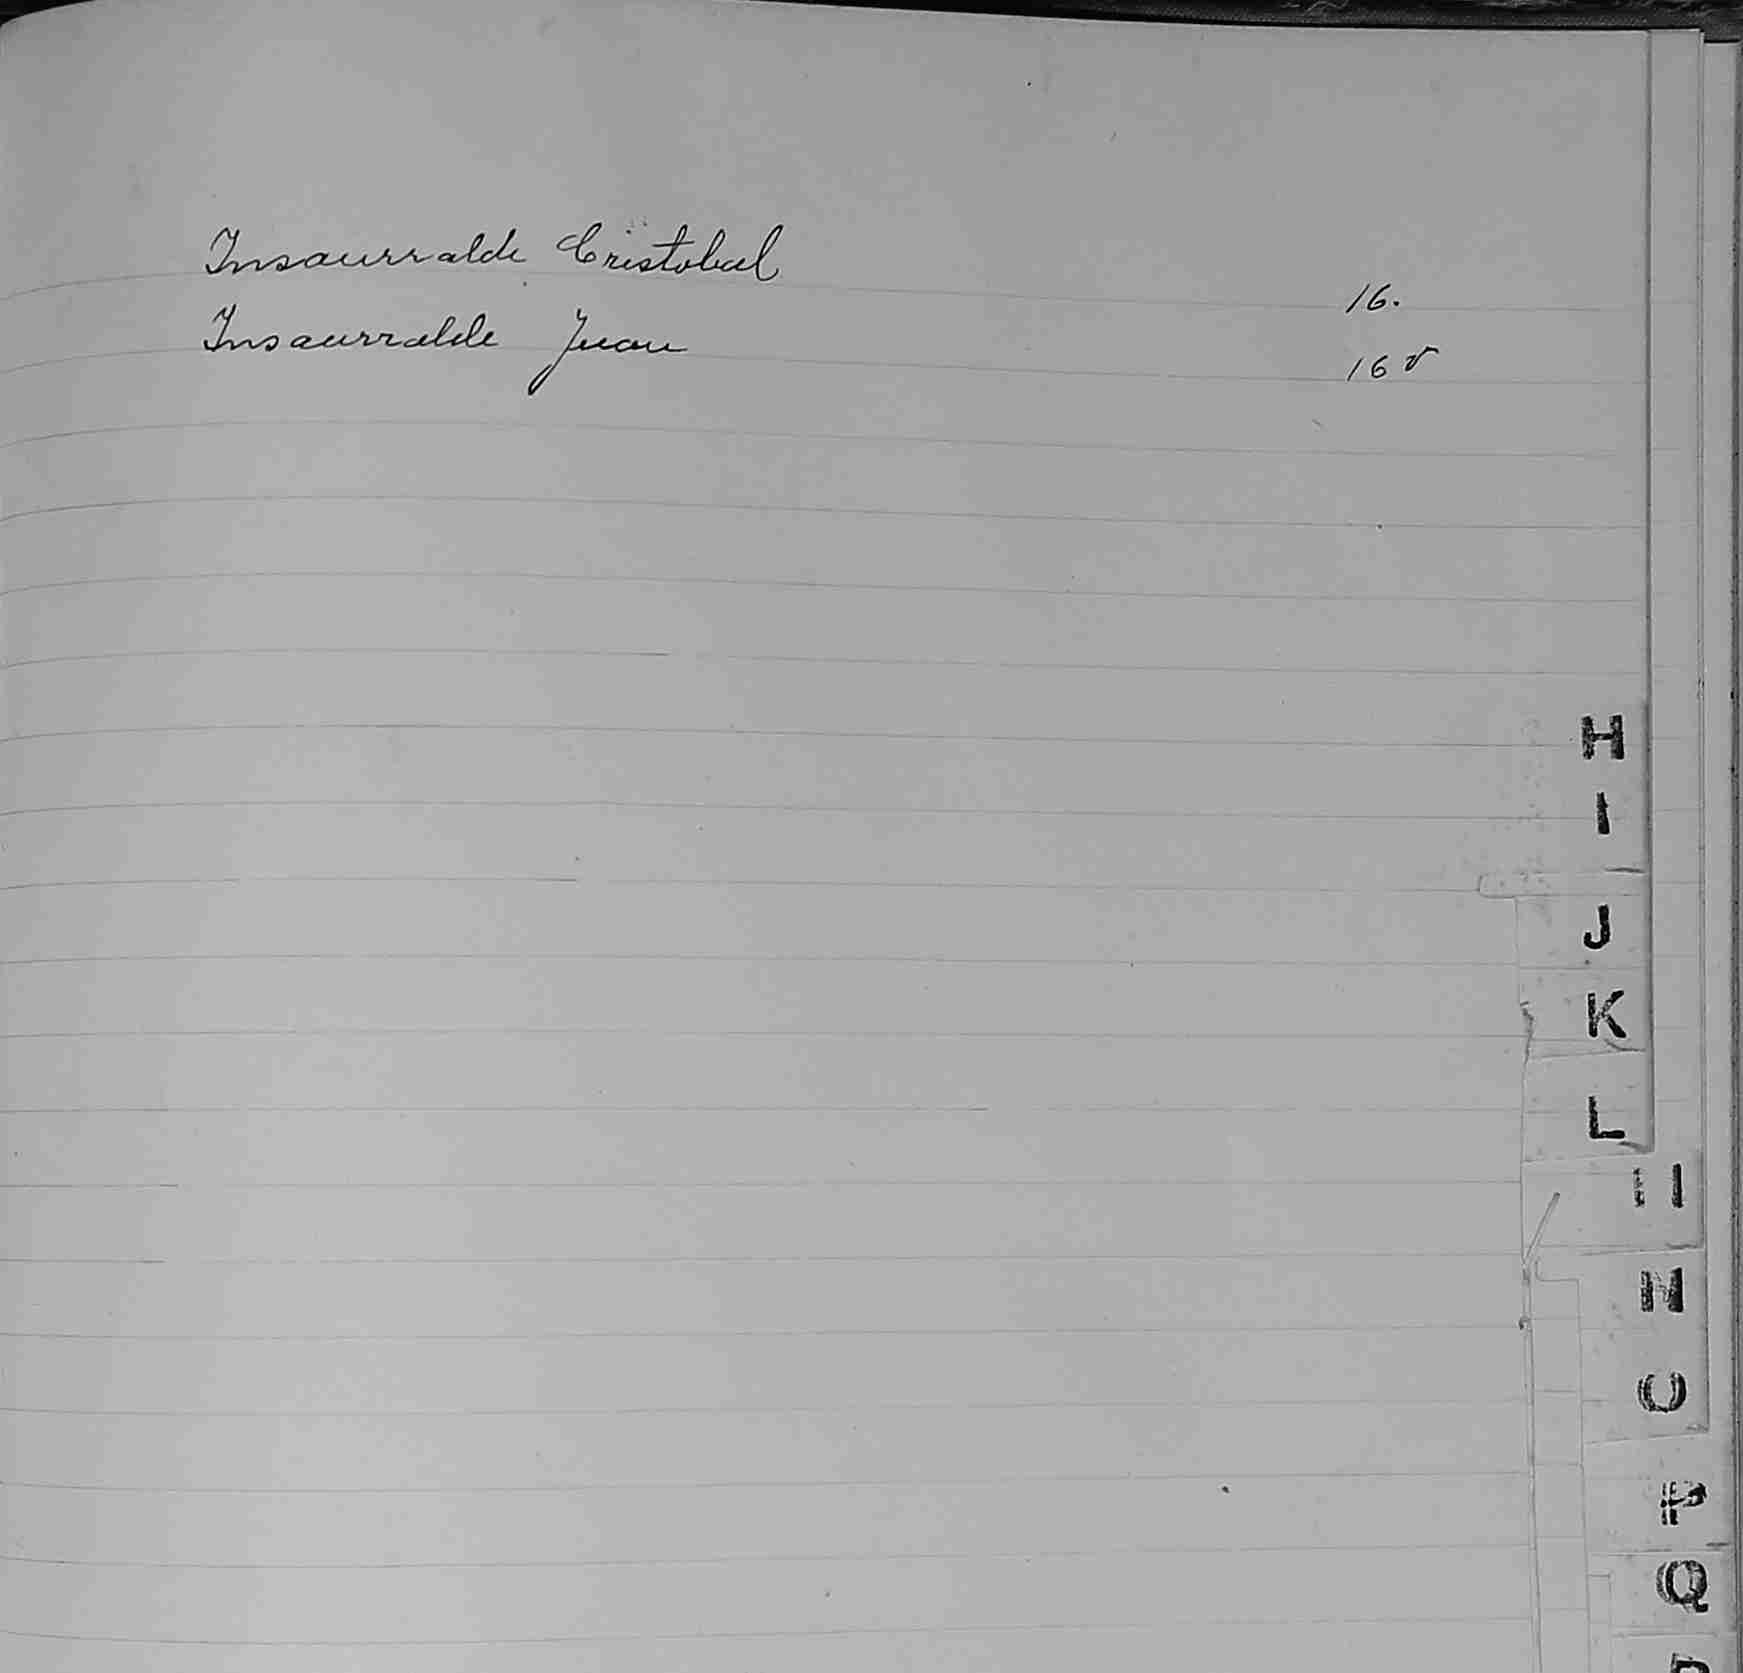 Insaurralde Cristobal 16.
Insaurralde Juan 16 v
H
I
J
K
L
N
O
P
Q